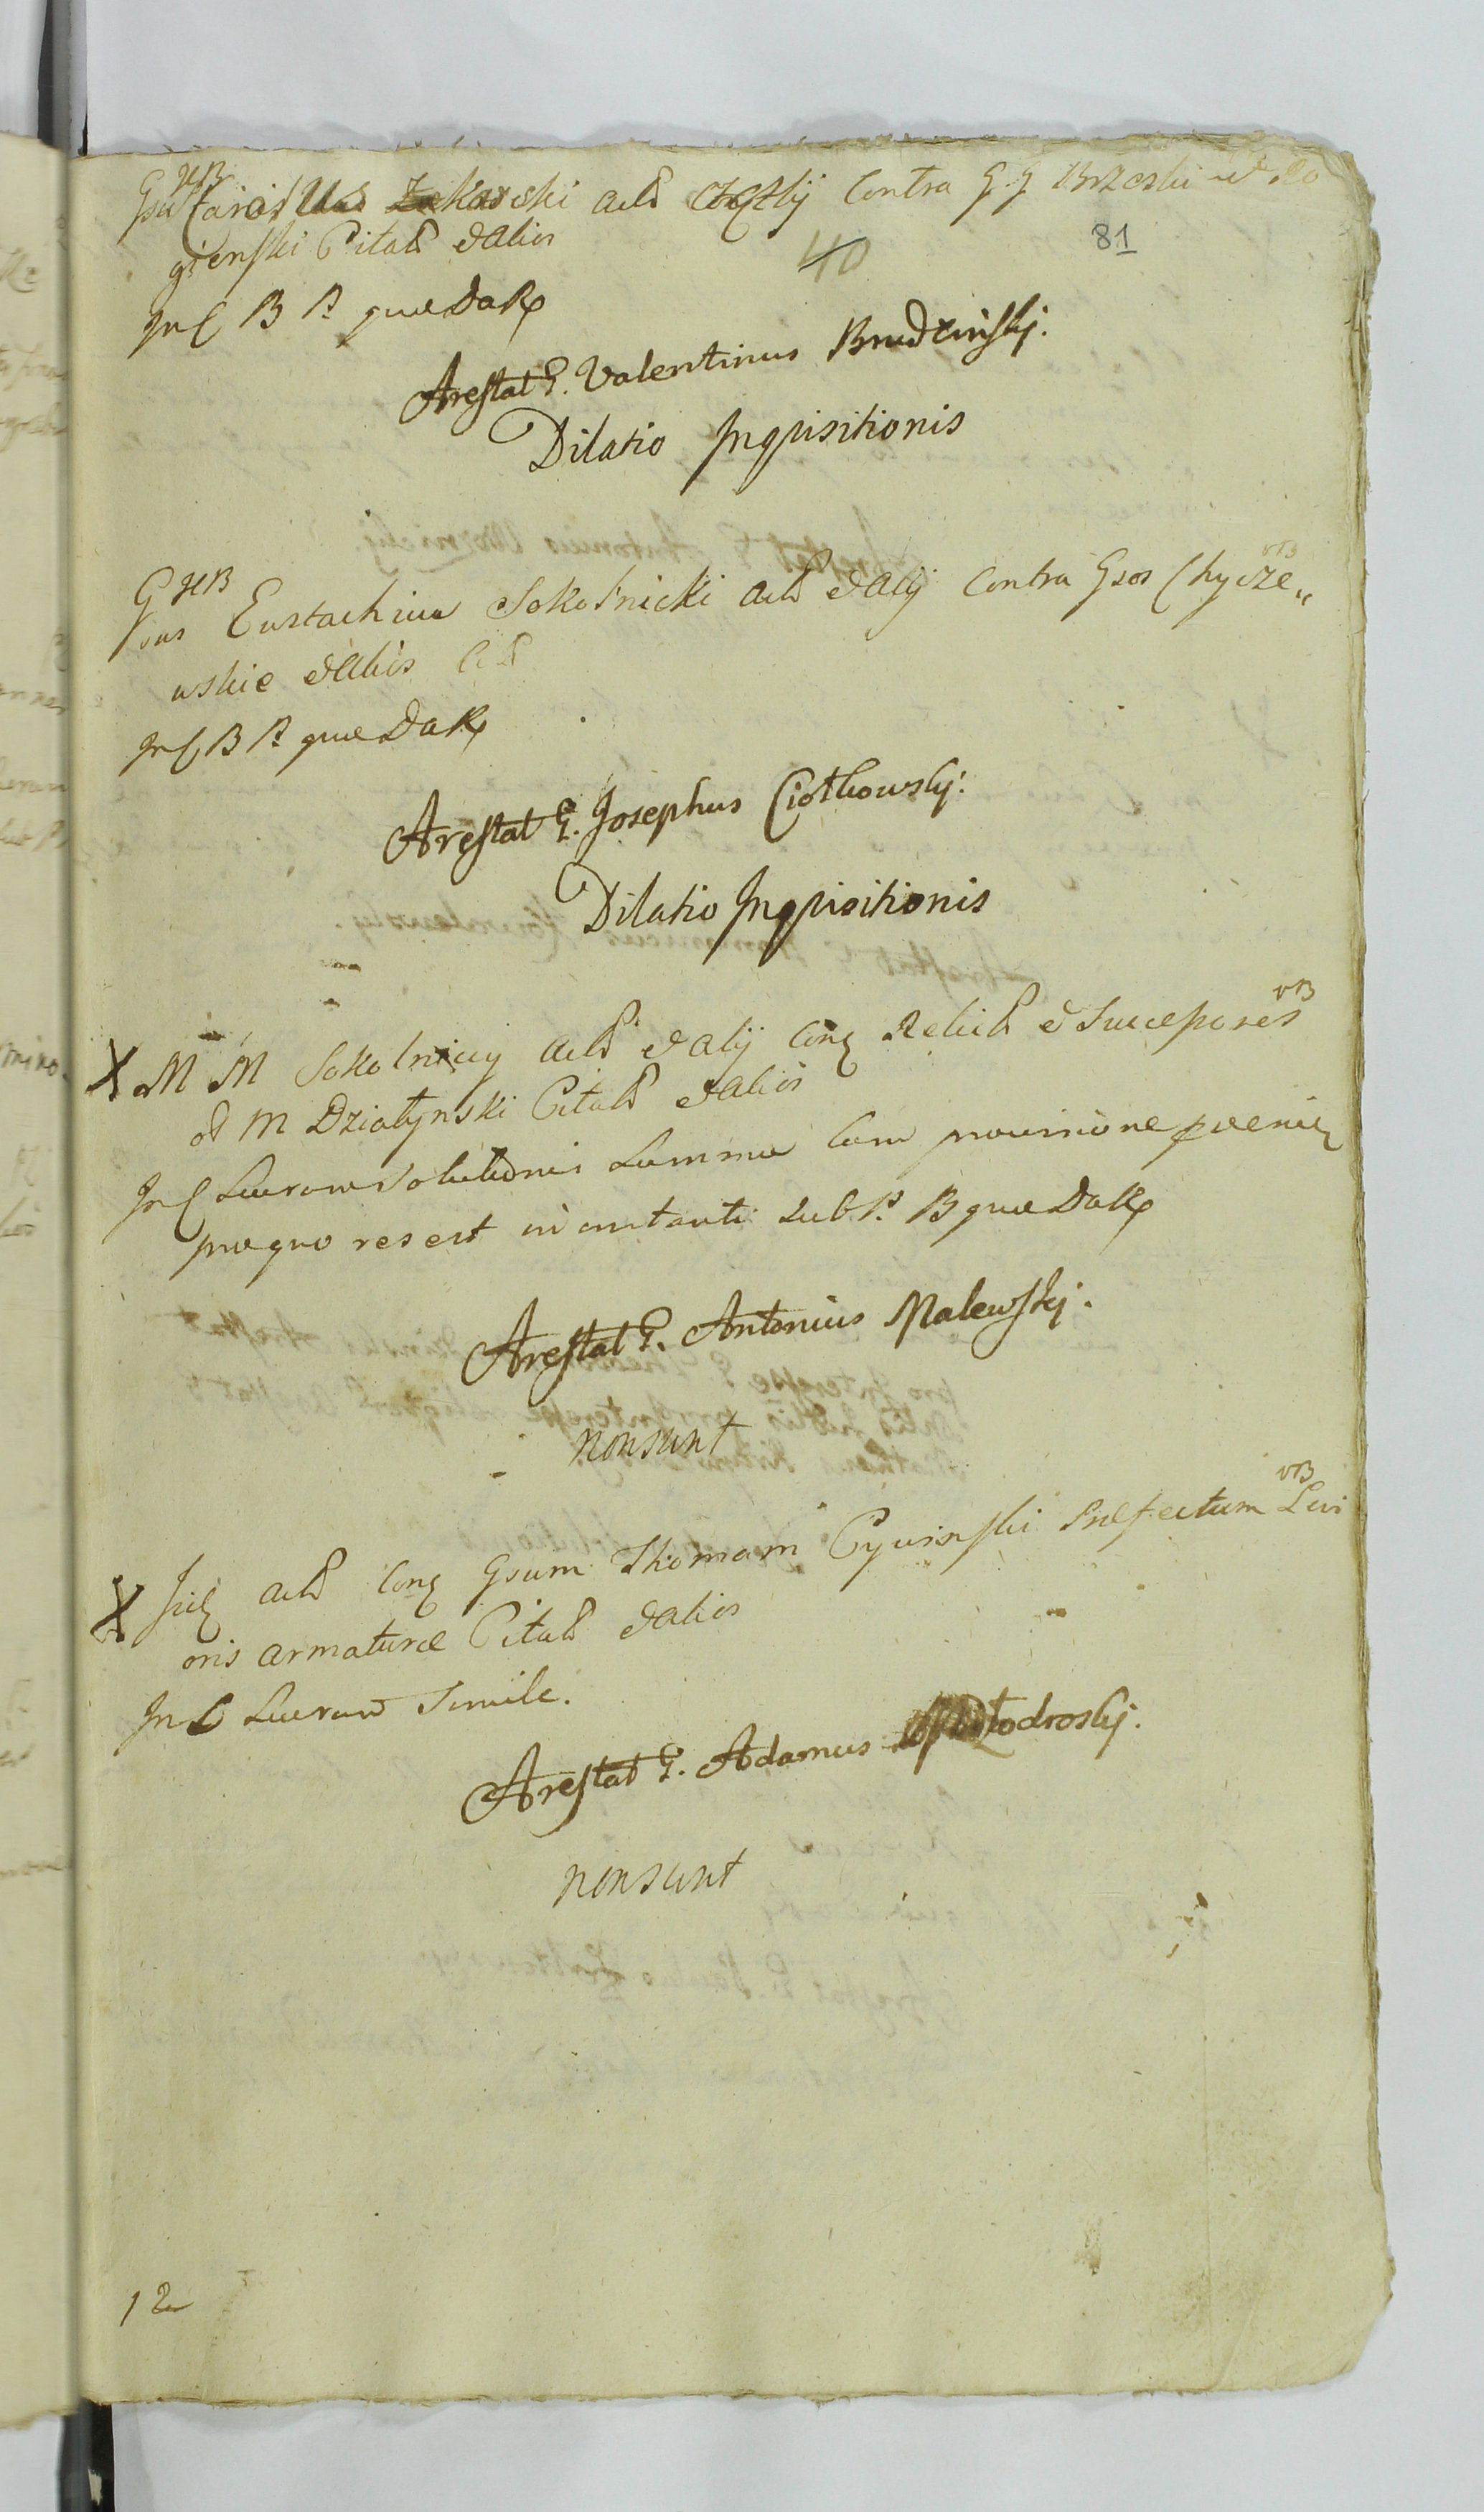 HB
Gsus Carolus Zakarski act et alij Contra G. G Brzeski et Ro
gienski Citat et alios
40
81
In C B P. quae Dak
Arestat G. Valentinus Brudzinskj.
Dilatio Inqvisitionis
HB
Gsus Eustachius Sokolnicki act et alij Contra Gsos Chycze„
wskie et alios Cit
In C B P. quae Dak
Arestat G. Josephus Ciotkowskj.
Dilatio Inqvisitionis
vB
X M M Sokolnicy act et alij Conq Relict et Successores
ol M Działynski Citat et alios
In C Lucrow Solutionis Summae Cum provisione poeniq
prae quo res est in instanti sub P. B quae Dak
Arestat G. Antonius Malewskj.
non sunt
vB
X Friq act Conq Gsum Thomam Cywinski Praefectum Levi
oris armaturae Citat et alios
In C Lucrow Simile.
Arestat G. Adamus
non sunt
12